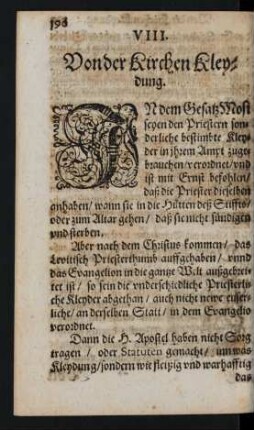 198
VIII.
Von der Kirchen Kley-
dung.
IN dem Gesatz Mosi
seyen den Priestern son-
derliche bestimbte Kley-
der in jhrem Ampt zuge-
brauchen / verordnet / vnd
ist mit Ernst befohlen /
daß die Priester dieselben
anhaben / wann sie in die Hütten deß Stiffts /
oder zum Altar gehen / daß sie nicht sündigen
vnd sterben.
Aber nach dem Christus kommen / das
Levitisch Priesterthumb auffgehaben / vnnd
das Evangelion in die gantze Welt außgebrei-
tet ist / so sein die vnderschiedliche Priesterli-
che Kleyder abgethan / auch nicht newe eusser-
liche / an derselben Statt / in dem Evangelio
verordnet.
Dann die H. Apostel haben nicht Sorg
tragen / oder Statuten gemacht / umb was
Kleydung / sondern wie fleissig vnd warhafftig
das